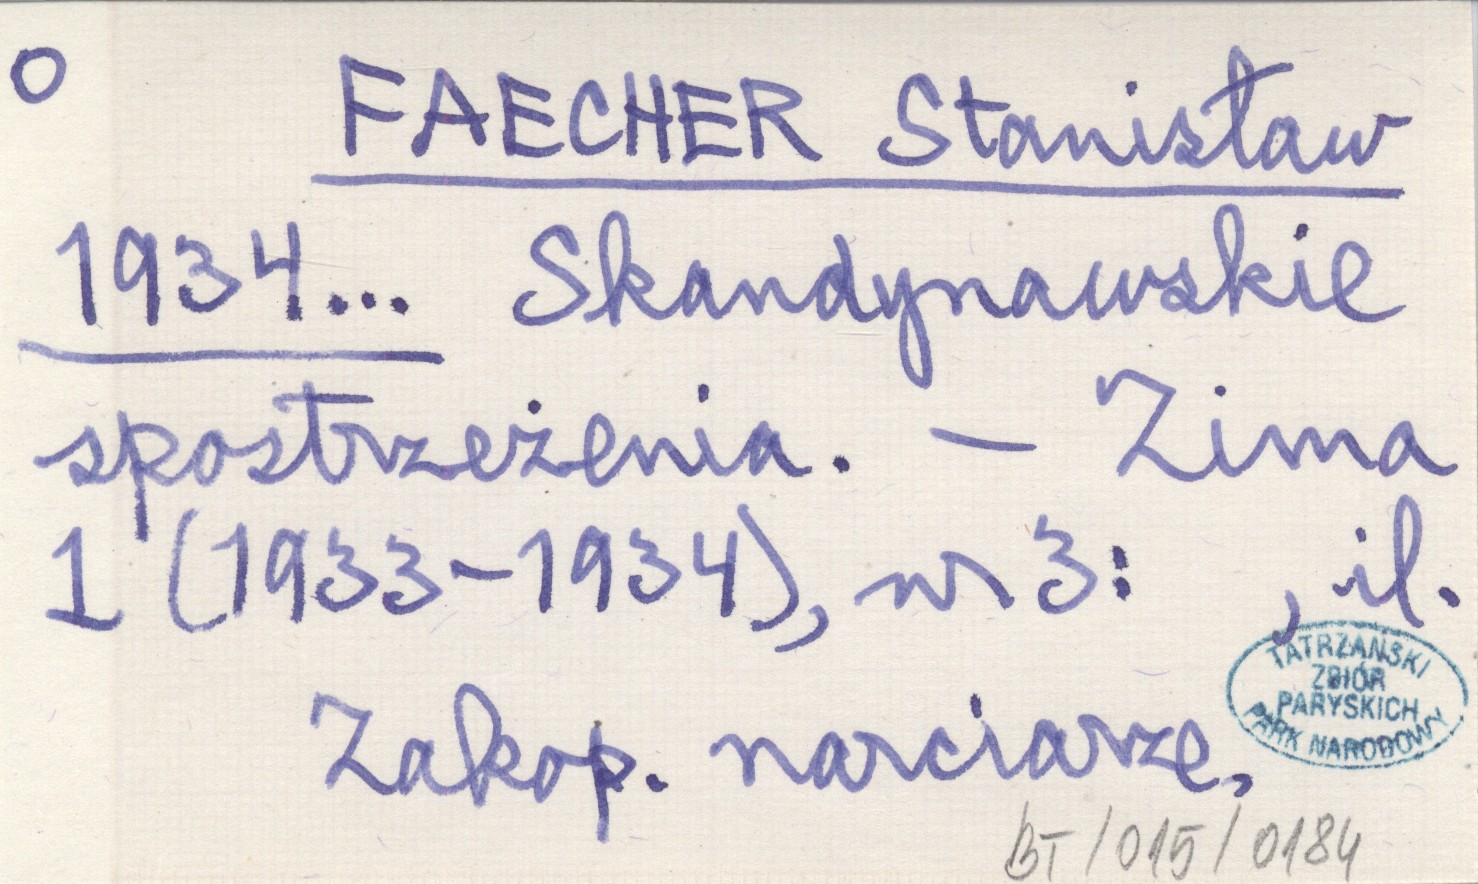 O FAECHER Stanisław
1934... Skandynawskie
spostrzeżenia. — Zima
1 (1933-1934), nr 3: , il.
TATRZAŃSKI
ZBIÓR
PARYSKICH
PARK NARODOWY
Zakop. narciarze,
BT/015/0184